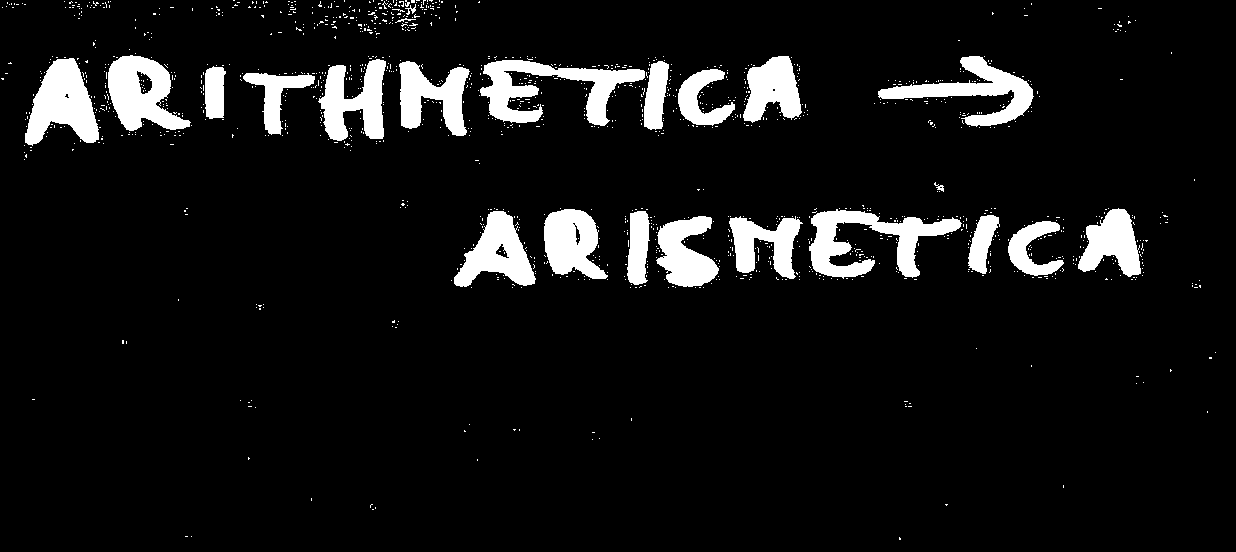 ARITHMETICA →
ARISMETICA